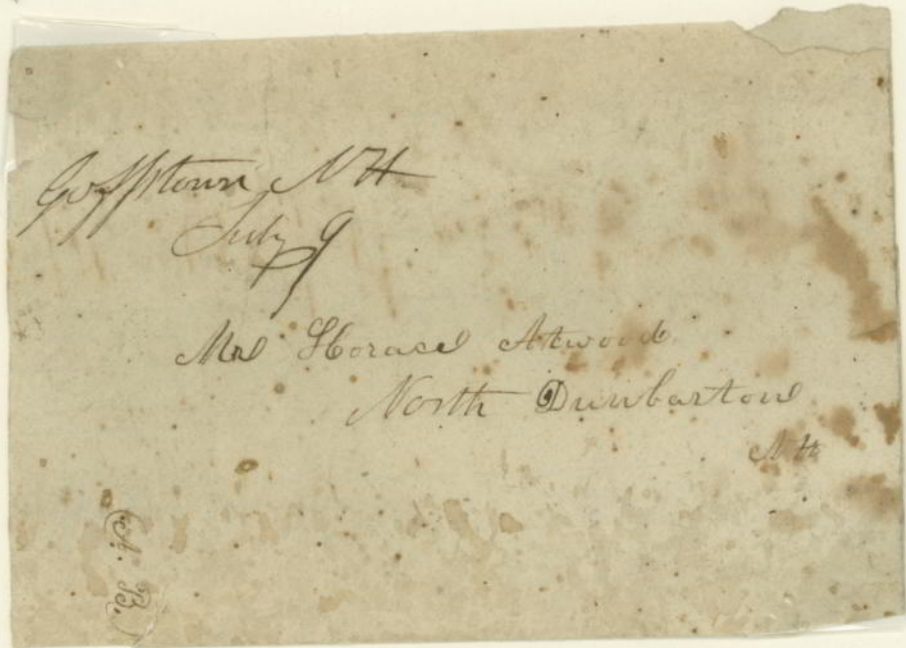 Goffstown NH
July 9
Mrs Horace Atwood
North Dunbarton
NH
(A. B.)